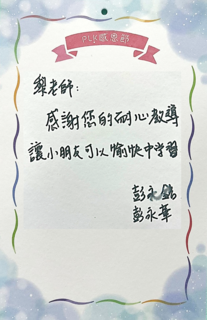 PLK感恩部
黎老師：
感謝您的耐心教導
讓小朋友可以愉快中学習
彭永銘
彭永華